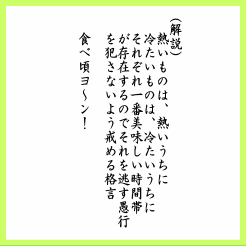 (解説)
熱いものは、熱いうちに
冷たいものは、冷たいうちに
それぞれ一番美味しい時間帯
が存在するのでそれを逃す愚行
を犯さないよう戒める格言
食べ頃ヨ～ン!